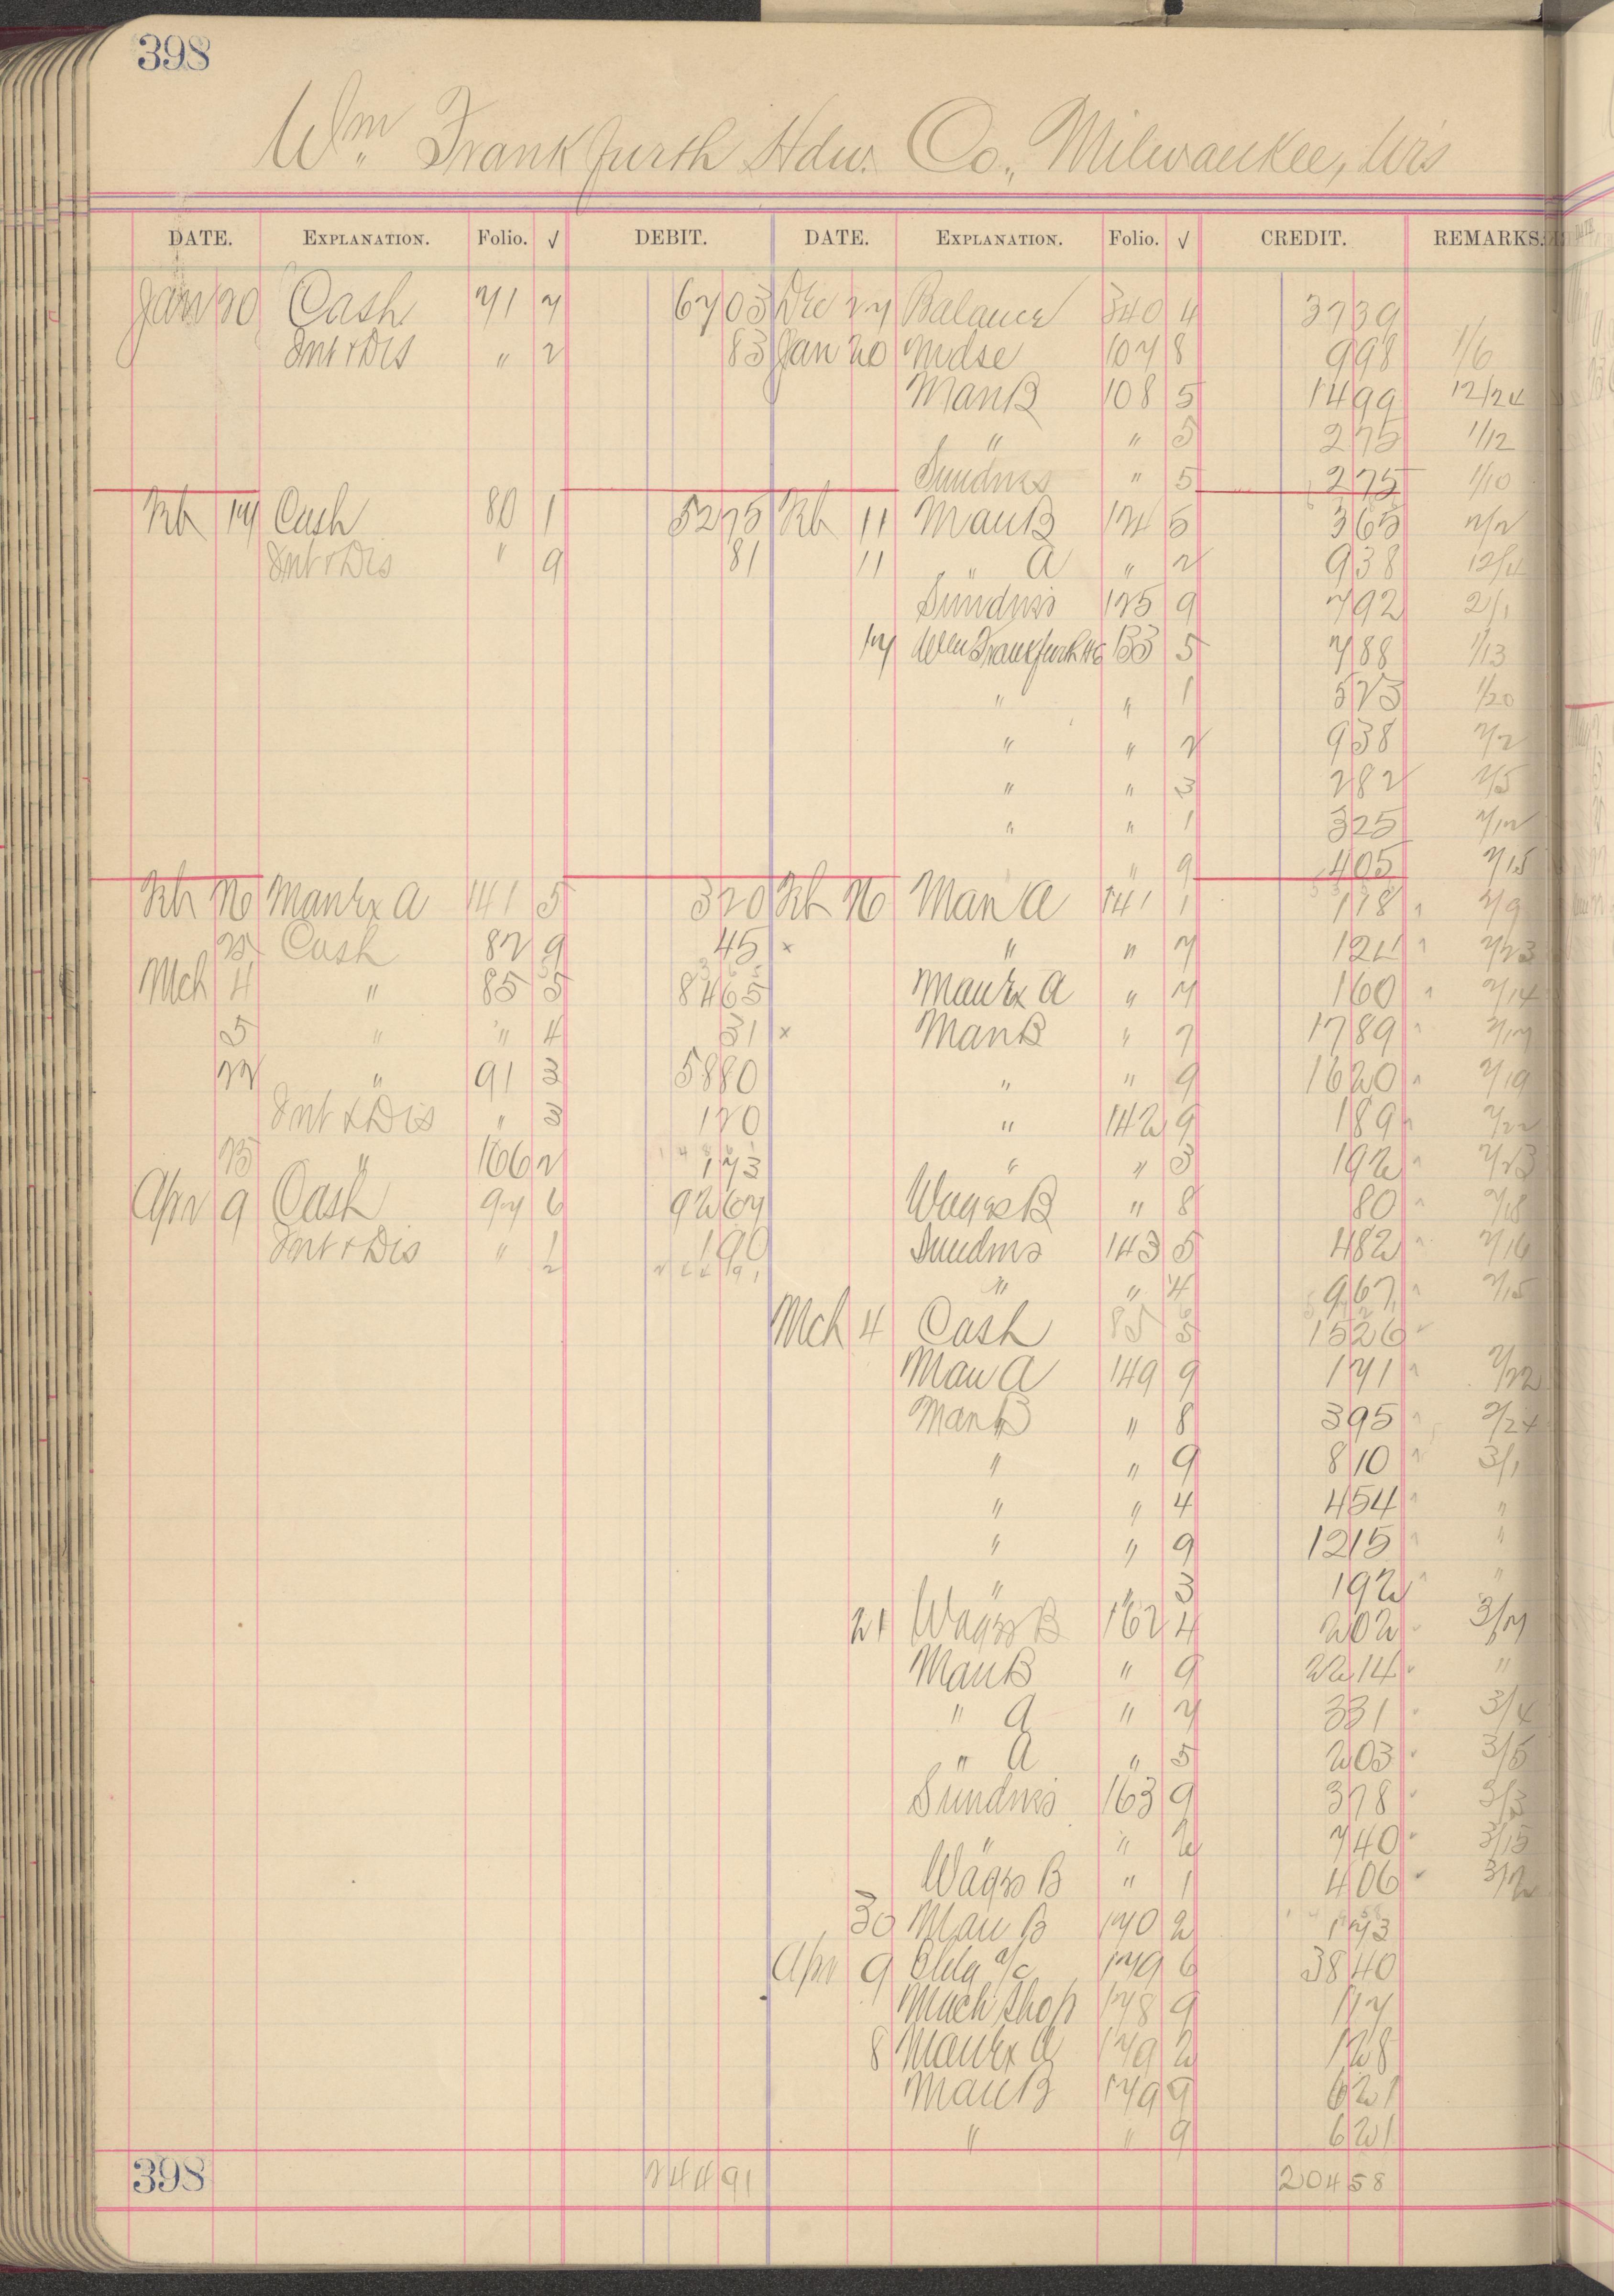 398
Wm. Frankfurth Hdw. Co., Milwaukee, Wis
DATE. EXPLANATION. Folio. √ DEBIT. DATE. EXPLANATION. Folio. √ CREDIT. REMARKS.
Jan 20 Cash 71 7 67 03 Dec 27 Balance 340 4 37 39
Int & Dis " 2 83 Jan 20 Mdse 107 8 9 98 1/6
Man B 108 5 14 99 12/24
" " 5 2 75 1/12
Sundries " 5 2 75 1/10
Feb 17 Cash 80 1 52 75 Feb 11 Man B 124 5 3 65 2/2
Int & Dis " 9 81 11 " A " 2 9 38
Sundries 125 9 7 92 2/1
17 Wm Frankfurth 133 5 7 88 1/13
" " 1 5 23 1/20
" " 2 9 38 2/2
" " 3 2 82 2/5
" " 1 3 25 2/12
" 9 4 05 2/15
Feb 26 Man Ex A 141 5 3 20 Feb 26 Man A 141 1 1 18 2/9
25 Cash 82 9 45 × " " 7 1 24 2/23
Mch 4 " 85 5 84 65 Man Ex A " 7 1 60 2/14
5 " " 4 31 × Man B " 7 17 89 2/17
22 " 91 3 58 80 " " 9 16 20 2/19
Int & Dis " 3 1 20 " 142 9 1 89 2/22
" 166 2 1 73 " " 3 1 92 2/23
Apr 9 Cash 97 6 92 67 Wages B " 8 80 2/18
Int & Dis " 1 1 90 Sundries 143 5 4 82 2/16
" " 4 9 67 2/15
Mch 4 Cash 85 5 15 26
Man A 149 9 1 71 2/22
Man B " 8 3 95 2/24
" " 9 8 10 3/1
" " 4 4 54 "
" " 9 12 15 "
" " 3 1 92 "
21 Wages B 162 4 2 02 3/7
Man B " 9 22 14 "
" A " 7 3 31 3/4
" A " 5 2 03 3/5
Sundries 163 9 3 78 3/3
" " 2 7 40 3/15
Wages B " 1 4 06
30 Man B 170 2 1 73
Apr 9 Bldg a/c 179 6 38 40
Mach Shop 178 9 1 17
8 Man Ex A 179 2 1 28
Man B 179 9 6 21
" " 9 6 21
398 244 91 204 58